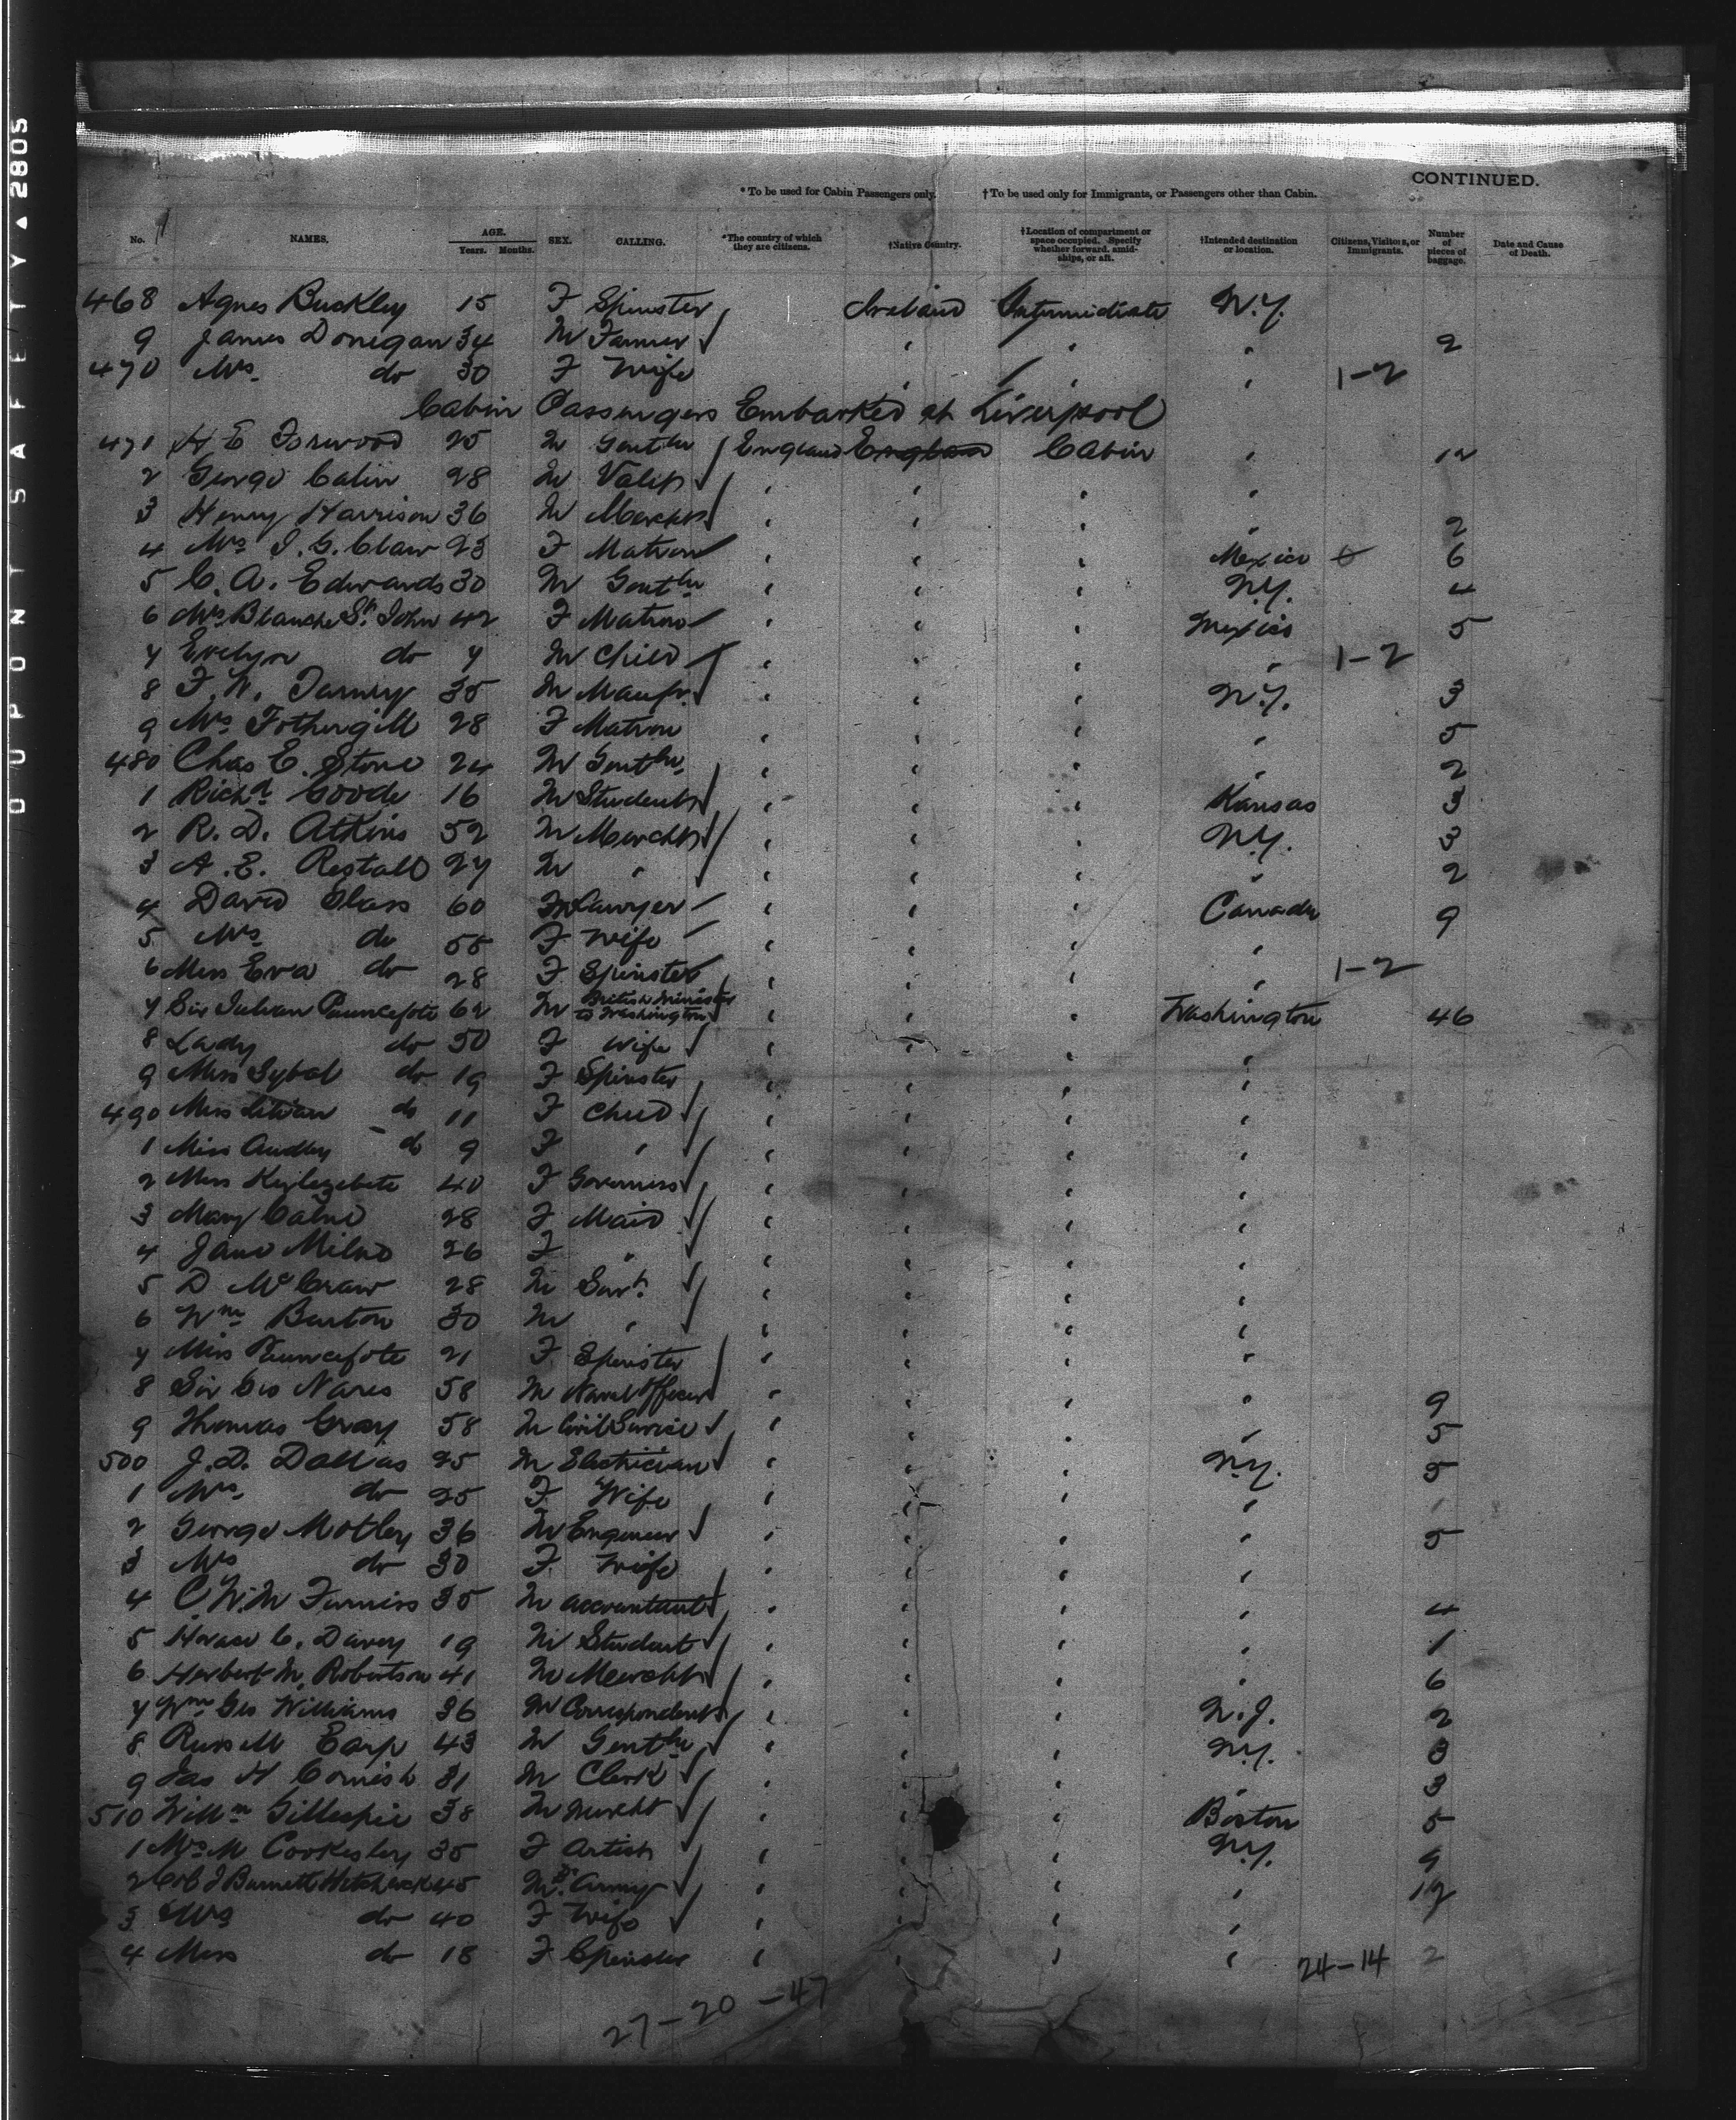 DUPONT SAFETY ▲ 2805
CONTINUED.
* To be used for Cabin Passengers only. † To be used only for Immigrants, or Passengers other than Cabin.
No. NAMES. AGE. Years. Months. SEX. CALLING. *The country of which they are citizens. †Native Country. †Location of compartment or space occupied. Specify whether forward, amidships, or aft. †Intended destination or location. Citizens, Visitors, or Immigrants. Number of pieces of baggage. Date and Cause of Death.
468 Agnes Buckley 15 F Spinster Ireland Intermediate N.Y.
9 James Donegan 34 M Farmer " " " 2
470 Mrs do 30 F Wife " " " 1-2
Cabin Passengers Embarked at Liverpool
471 H E Forwood 25 M Gentln England England Cabin " 12
2 George Catin 28 M Valet " " " "
3 Henry Harrison 36 M Mercht " " " " 2
4 Mrs J. G. Claw 23 F Matron " " " Mexico 6
5 C. A. Edwards 30 M Gentln " " " N.Y. 4
6 Mrs Blanche St. John 42 F Matron " " " Mexico 5
7 Evelyn do 7 M Child " " " " 1-2
8 F. W. 35 M Manfr. " " " N.Y. 3
9 Mrs Fothergill 28 F Matron " " " " 5
480 Chas E. Stone 24 M Gentln. " " " " 2
1 Richd Goode 16 M Student " " " Kansas 3
2 R. D. Atkins 52 M Mercht " " " N.Y. 3
3 A. E. Restall 27 M " " " " " 2
4 David Glass 60 M Lawyer " " " Canada 9
5 Mrs do 55 F Wife " " " "
6 Miss Eva do 28 F Spinster " " " " 1-2
7 Sir Julian Pauncefote 62 M British Minister to Washington " " " Washington 46
8 Lady do 50 F Wife " " " "
9 Miss Sybal do 19 F Spinster " " " "
490 Miss Lilian do 11 F Child " " " "
1 Miss Audley do 9 F " " " " "
2 Miss 40 F Governess " " " "
3 Mary Calne 28 F Maid " " " "
4 Jane Milne 26 F " " " " "
5 D McCraw 28 M Servt. " " " "
6 Wm Burton 30 M " " " " "
7 Miss Pauncefote 21 F Spinster " " " "
8 Sir Geo Nares 58 M Naval Officer " " " " 9
9 Thomas Gray 58 M Civil Service " " " " 5
500 J. D. Dallas 25 M Electrician " " " N.Y. 5
1 Mrs do 25 F Wife " " " "
2 George Motley 36 M Engineer " " " " 5
3 Mrs do 30 F Wife " " " "
4 C W. M Furniss 35 M Accountant " " " " 4
5 Horace C. Davey 19 M Student " " " " 1
6 Herbert M. Robertson 41 M Mercht " " " " 6
7 Wm Geo Williams 36 M Correspondent " " " N.J. 2
8 Russell Earp 43 M Gentln " " " N.Y. 3
9 Jas H Cornish 31 M Clerk " " " " 3
510 Willm Gillespie 38 M Mercht " " " Boston 5
1 Mrs M Cookesley 35 F Artist " " " N.Y. 9
2 Col J Burnett 45 M Army " " " " 12
3 Mrs do 40 F Wife " " " "
4 Miss do 18 F Spinster " " " " 24-14 2
27-20-47